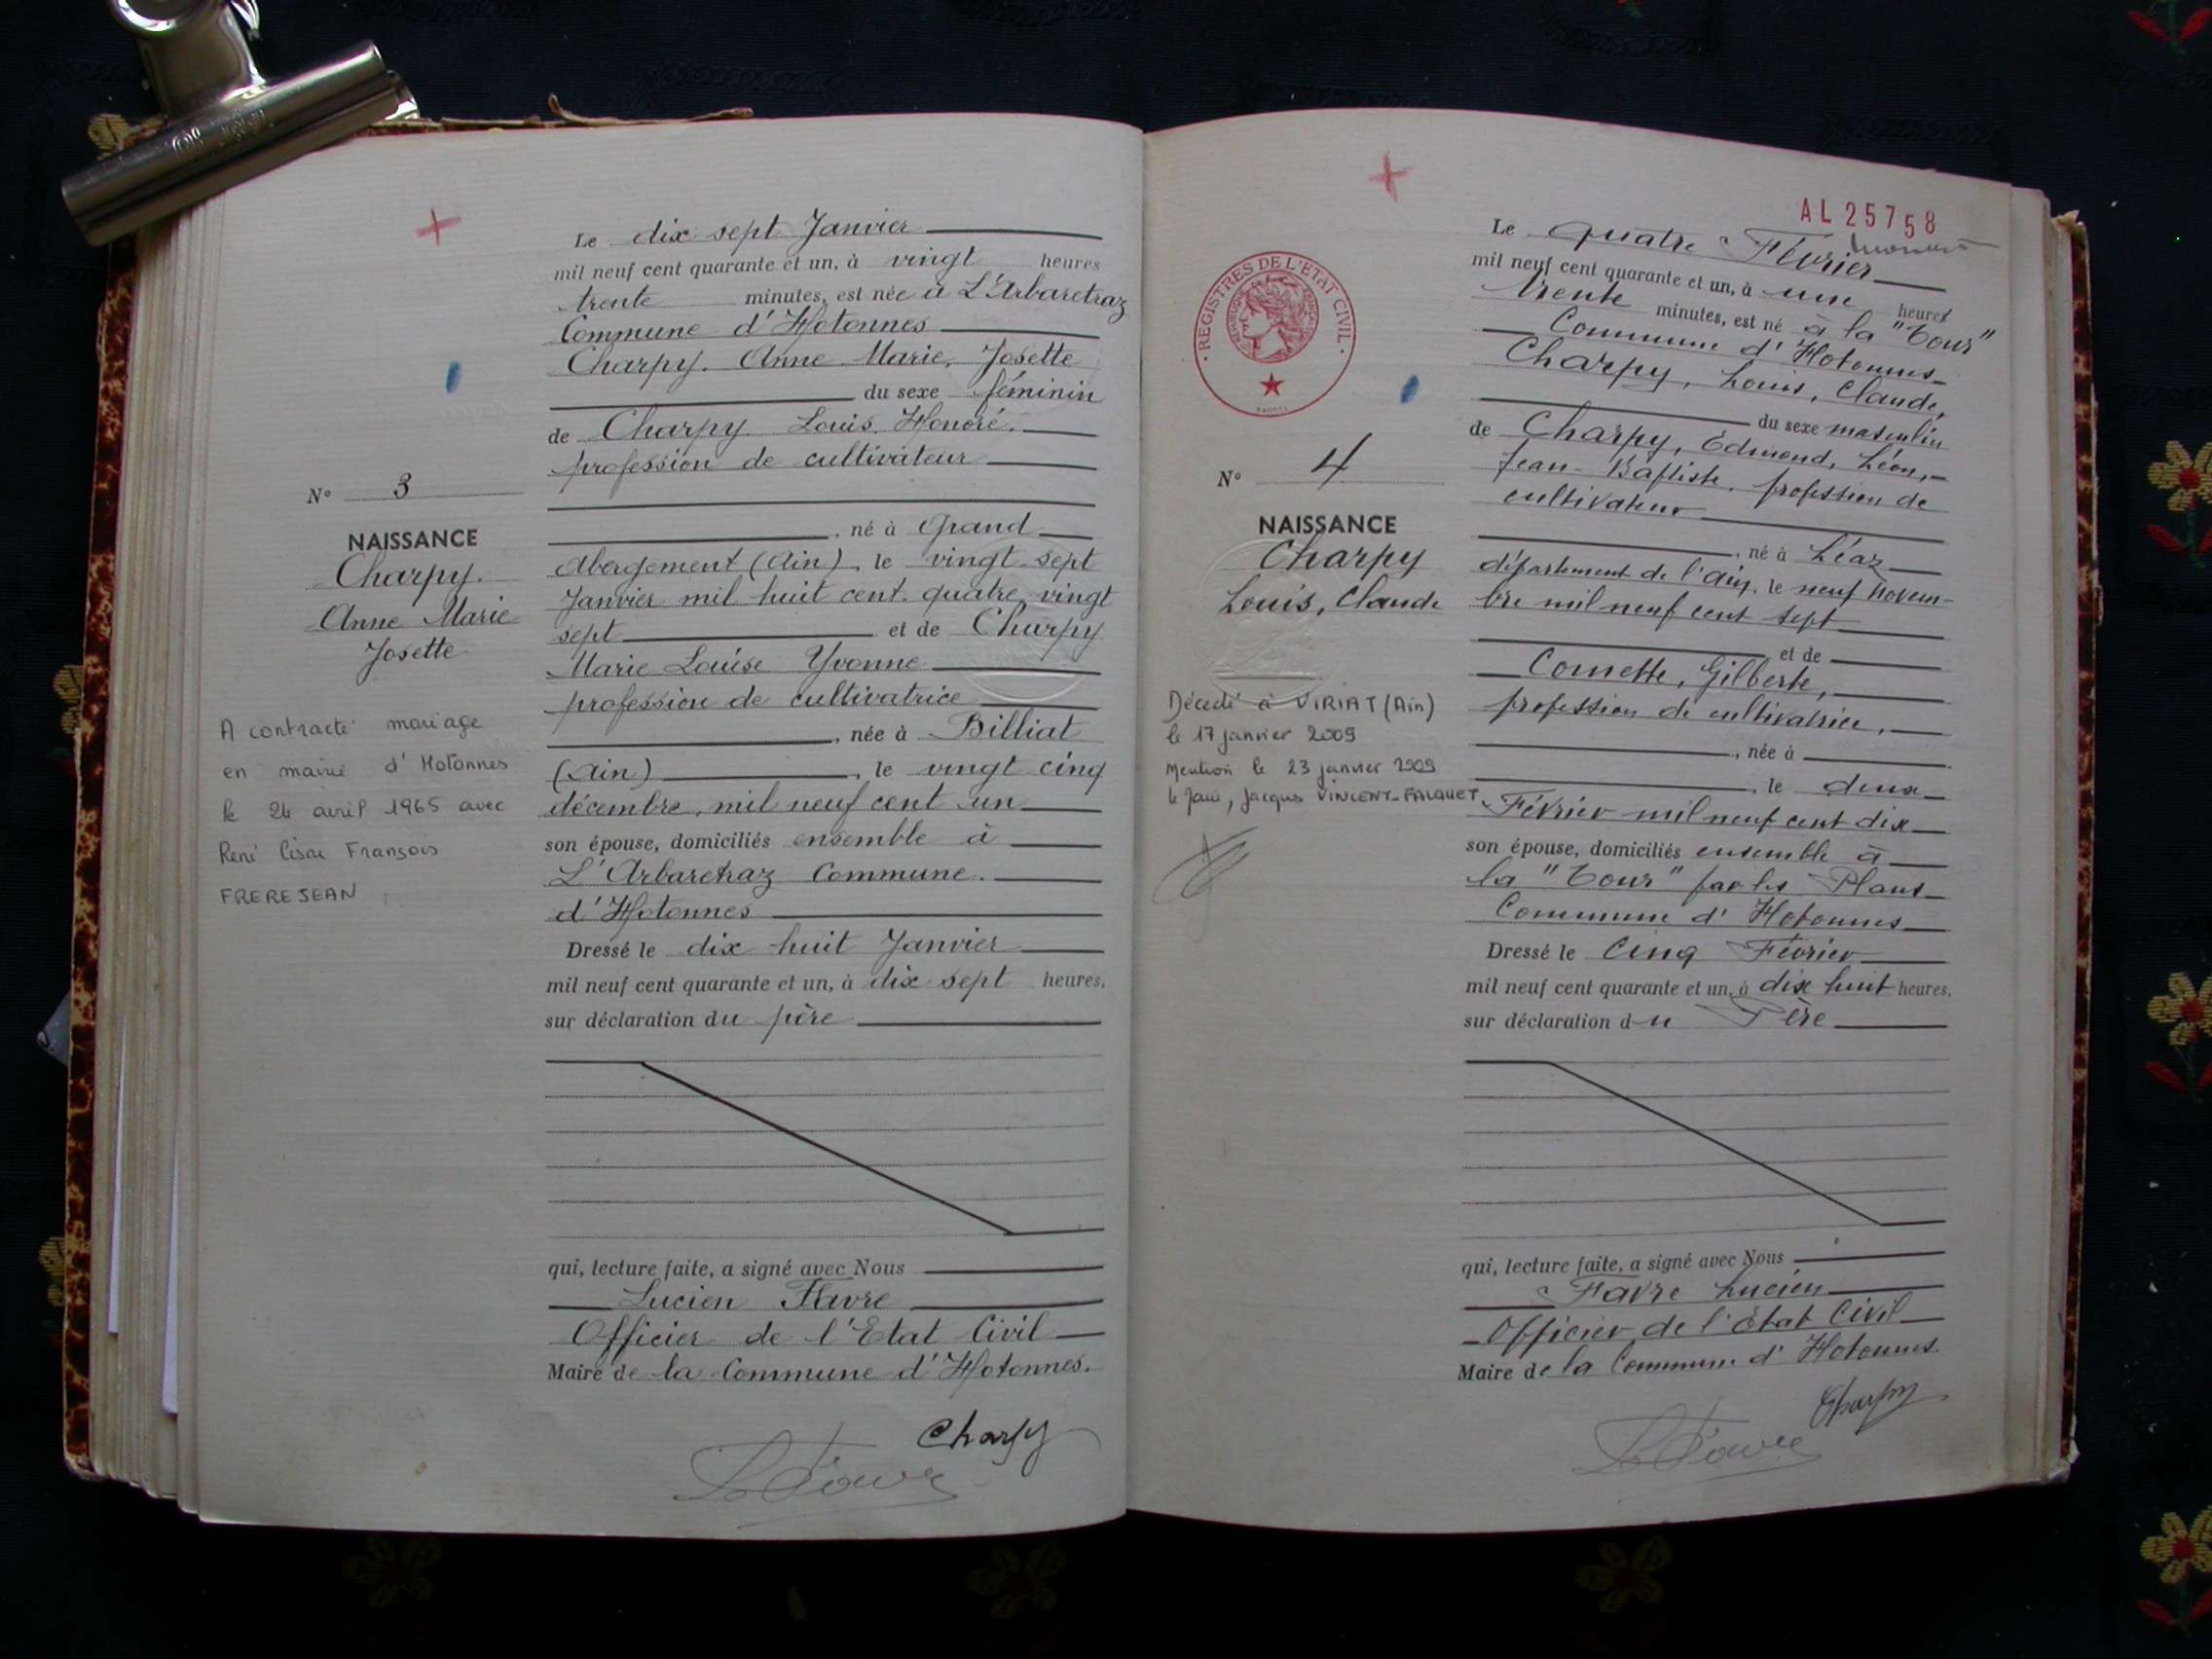 Le dix sept Janvier
mil neuf cent quarante et un, à vingt heures
trente minutes, est née à L'Arbaretraz
Commune d'Hotonnes
Charpy. Anne Marie, Josette
du sexe féminin
de Charpy Louis Honoré.
profession de cultivateur
N° 3
NAISSANCE
Charpy.
Anne Marie
Josette
, né à Grand
Abergement (Ain), le vingt sept
Janvier mil huit cent quatre vingt
sept et de Charpy
Marie Louise Yvonne
profession de cultivatrice
, née à Billiat
(Ain), le vingt cinq
décembre, mil neuf cent un
son épouse, domiciliés ensemble à
L'Arbaretraz Commune.
d'Hotonnes
A contracté mariage
en mairie d'Hotonnes
le 24 avril 1965 avec
René François
FREREJEAN
Dressé le dix huit Janvier
mil neuf cent quarante et un, à dix sept heures,
sur déclaration du père
qui, lecture faite, a signé avec Nous
Lucien Favre
Officier de l'Etat Civil
Maire de la Commune d'Hotonnes.
Charpy
LFavre
AL 25758
REGISTRES DE L'ETAT CIVIL
Le quatre Février
mil neuf cent quarante et un, à une heure
trente minutes, est né à la "Tour"
Commune d'Hotonnes
Charpy, Louis, Claude,
du sexe masculin
de Charpy, Edmond, Léon,
Jean-Baptiste, profession de
cultivateur
N° 4
NAISSANCE
Charpy
Louis, Claude
, né à Léaz
département de l'ain, le neuf Novem-
bre mil neuf cent sept
et de
Comette, Gilberte,
profession de cultivatrice,
, née à
, le deux
Février mil neuf cent dix
son épouse, domiciliés ensemble à
la "Tour" par les Plans
Commune d'Hotonnes
Décédé à VIRIAT (Ain)
le 17 janvier 2009
Mention le 23 janvier 2009
le Jacques VINCENT-FALQUET
Dressé le Cinq Février
mil neuf cent quarante et un, à dix huit heures,
sur déclaration du Père
qui, lecture faite, a signé avec Nous
Favre Lucien
Officier de l'Etat Civil
Maire de la Commune d'Hotonnes.
Charpy
LFavre